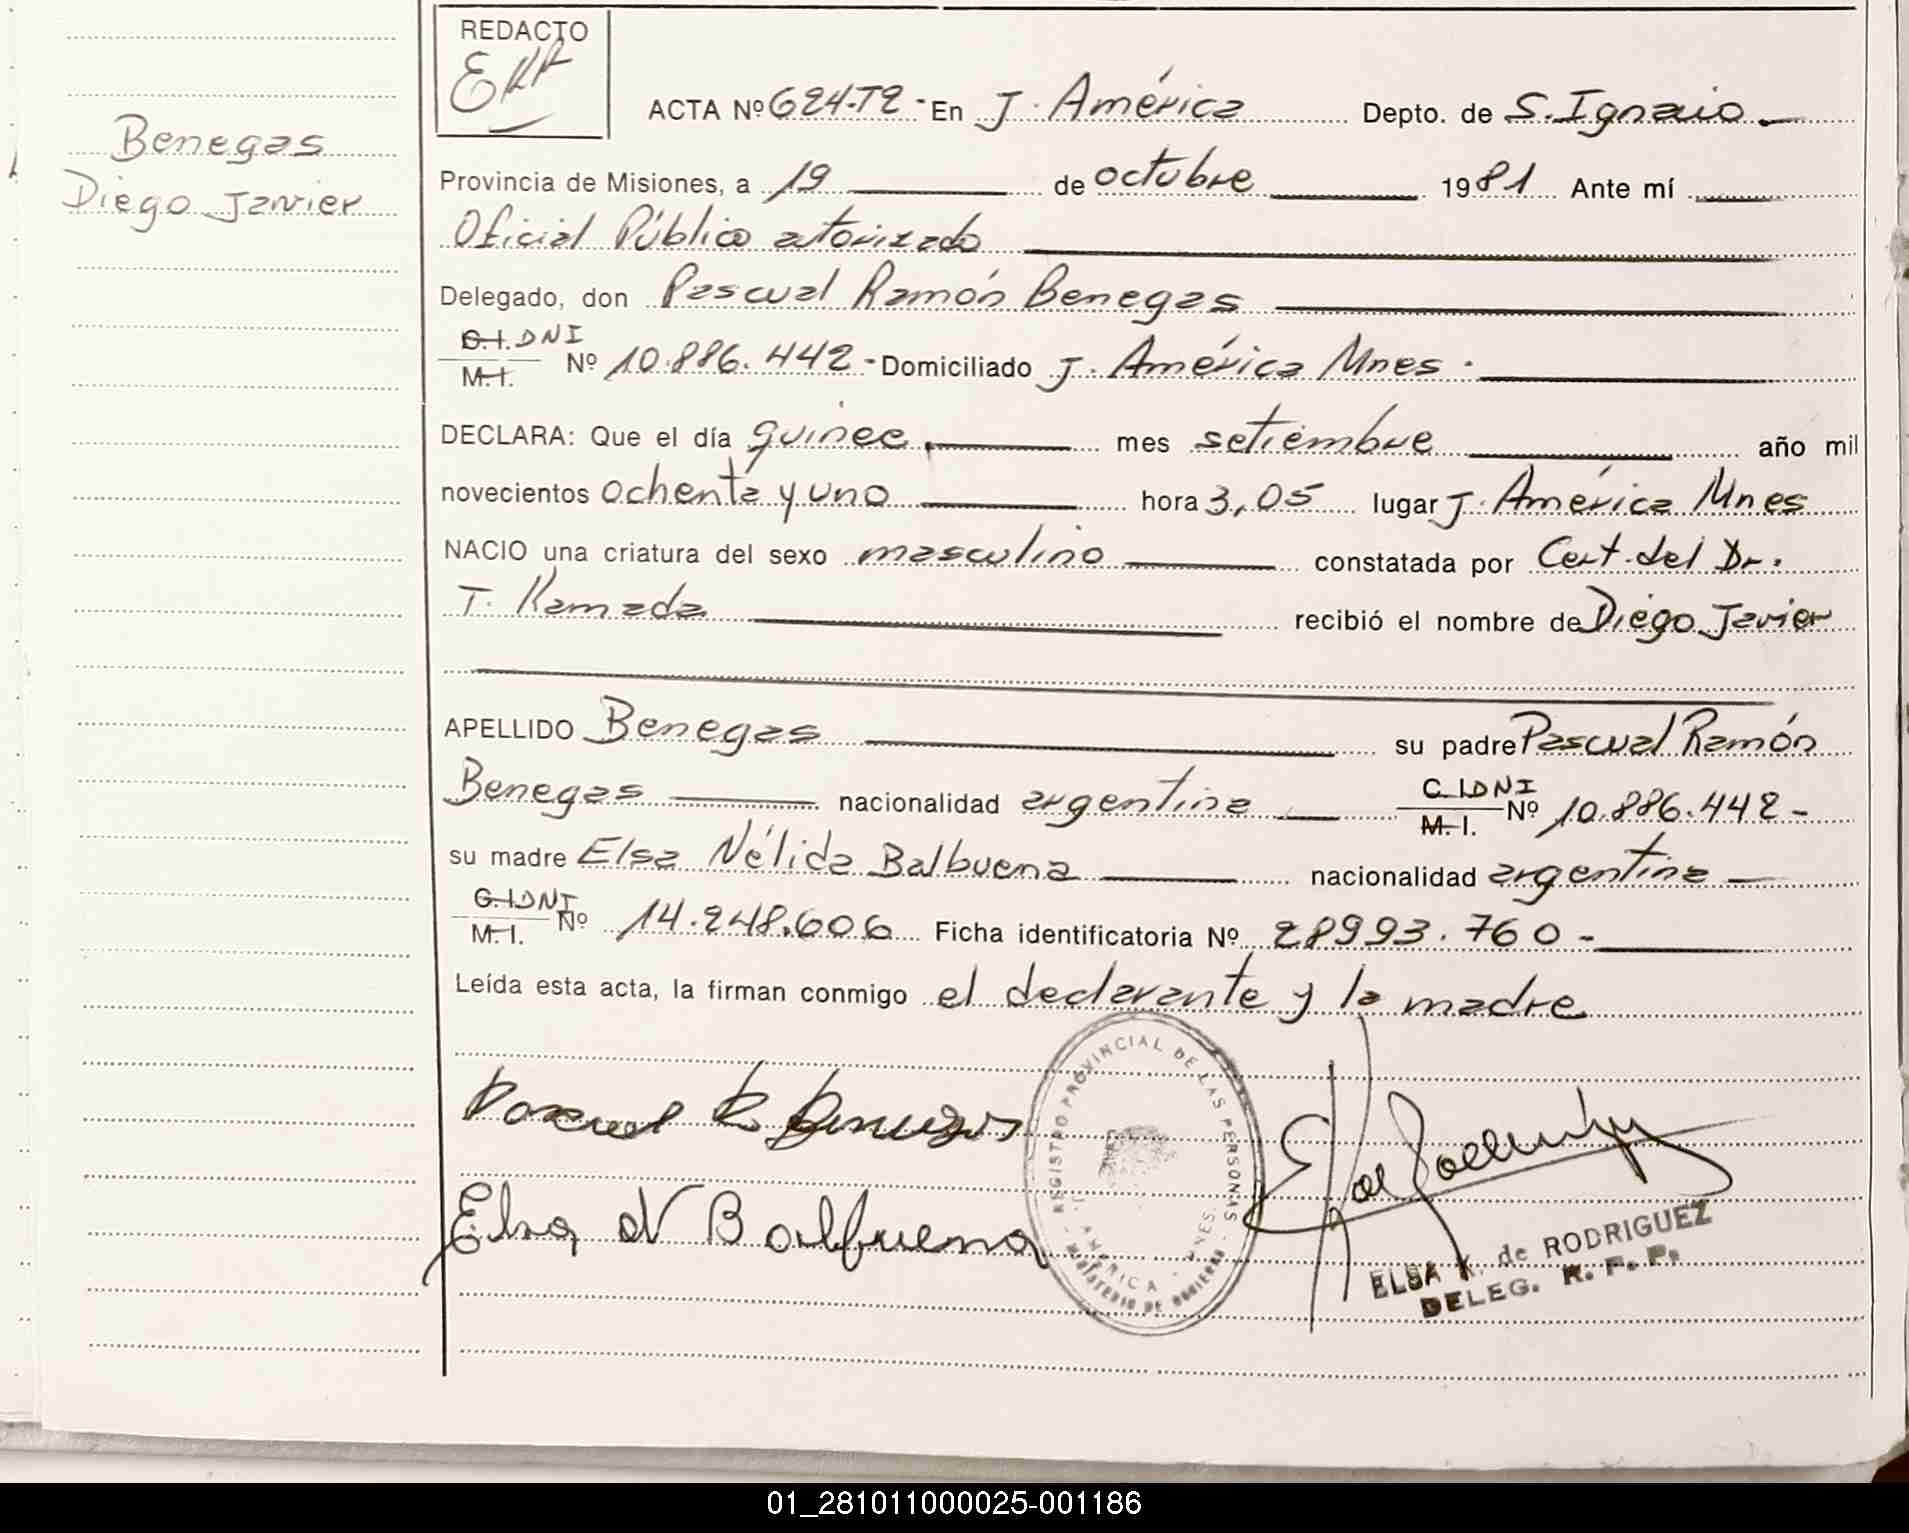 REDACTO
EKR
ACTA Nº 624-T2- En J. América Depto. de S. Ignacio
Benegas
Diego Javier
Provincia de Misiones, a 19 de octubre 1981 Ante mí
Oficial Público autorizado
Delegado, don Pascual Ramón Benegas
C.I. DNI
M.I. Nº 10.886.442- Domiciliado J. América Mnes.
DECLARA: Que el día quince mes setiembre año mil
novecientos ochenta y uno hora 3,05 lugar J. América Mnes
NACIO una criatura del sexo masculino constatada por Cert. del Dr.
T. Kamada recibió el nombre de Diego Javier
APELLIDO Benegas su padre Pascual Ramón
Benegas nacionalidad argentina C.I. DNI
M.I. Nº 10.886.442-
su madre Elsa Nélida Balbuena nacionalidad argentina
C.I. DNI
M.I. Nº 14.248.606 Ficha identificatoria Nº 28993.760-
Leída esta acta, la firman conmigo el declarante y la madre
Pascual R Benegas
Elsa N Balbuena
REGISTRO PROVINCIAL DE LAS PERSONAS
J. AMÉRICA - MNES.
MINISTERIO DE GOBIERNO
ELSA K. de RODRIGUEZ
DELEG. R. P. P.
01_281011000025-001186